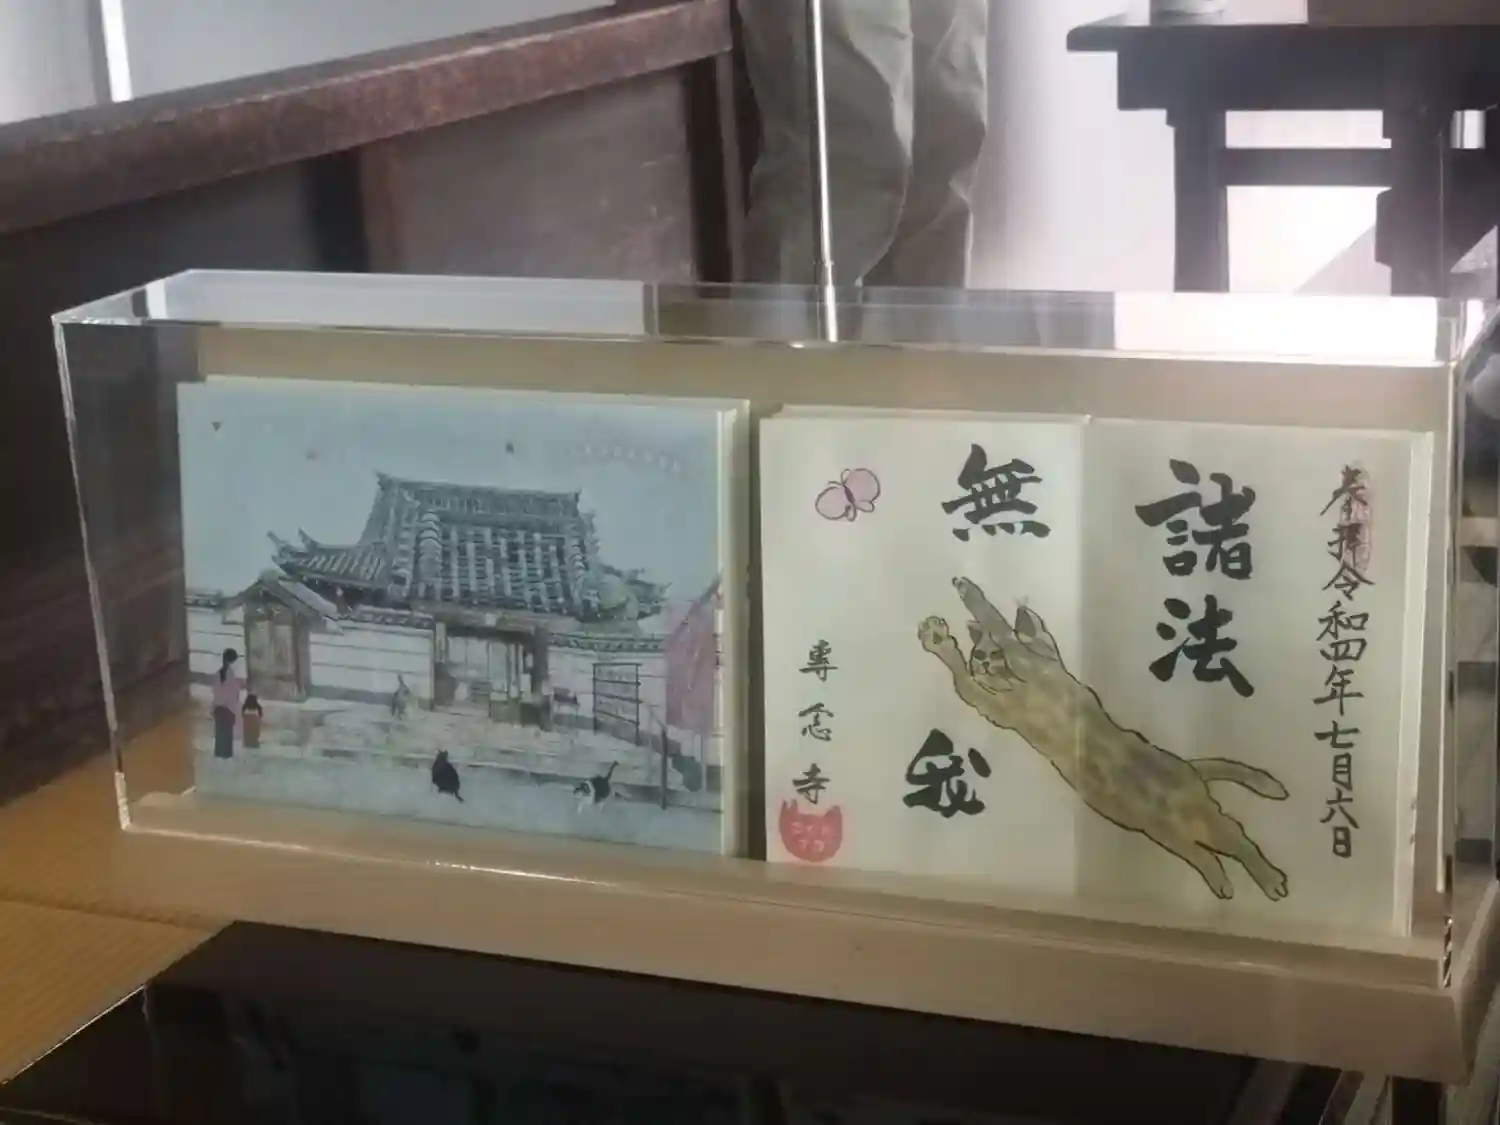 奉拝 令和四年七月六日
諸法
無我
專念寺